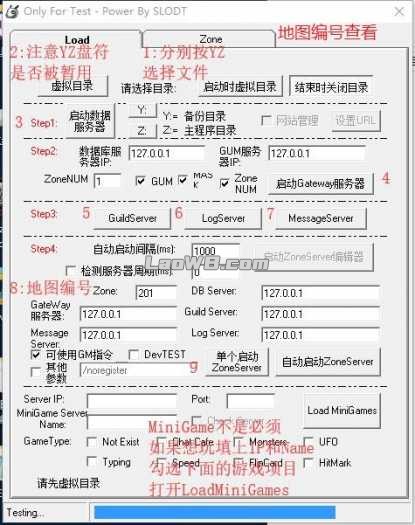 Only For Test - Power By SLODT
Load
Zone
地图编号查看
2:注意YZ盘符
是否被暂用
1:分别按YZ
选择文件
虚拟目录
请选择目录:
启动时虚拟目录
结束时关闭目录
3
Step1:
启动数据
服务器
Y:
Y:= 备份目录
Z:
Z:= 主程序目录
网站管理
设置URL
Step2:
数据库服
务器IP:
127.0.0.1
GUM服务
器IP:
127.0.0.1
4
ZoneNUM
1
GUM
MAS
K
Zone
NUM
启动Gateway服务器
Step3:
5
6
7
GuildServer
LogServer
MessageServer
Step4:
自动启动间隔(ms):
1000
启动ZoneServer编辑器
检测服务器周期(ms):
0
LaoWB.com
8:地图编号
Zone:
201
DB Server:
127.0.0.1
GateWay
服务器:
127.0.0.1
Guild Server:
127.0.0.1
Message
Server:
127.0.0.1
Log Server:
127.0.0.1
可使用GM指令
DevTEST
其他
参数
/noregister
9
单个启动
ZoneServer
自动启动ZoneServer
Server IP:
Port:
MiniGame Server
Name:
Load MiniGames
MiniGame不是必须
如果想玩填上IP和Name
勾选下面的游戏项目
打开LoadMiniGames
GameType:
Not Exist
Chat Cafe
Monsters
UFO
Typing
Speed
FlipCard
HitMark
请先虚拟目录
Testing...